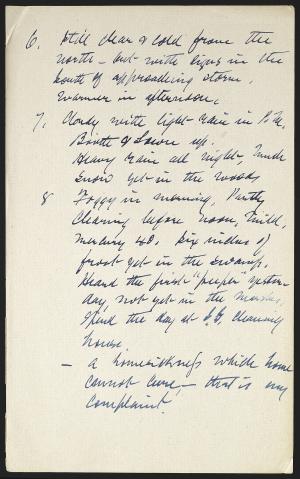 6. Still clear & cold from the
north - but with signs in the
South of approaching storm.
Warmer in afternoon.
7. Cloudy with light rain in P.M.
Booth & Lown up.
Heavy rain all night. Much
snow yet in the woods
8 Foggy in morning, Partly
Clearing before noon, Mild,
Mercury 48. Six inches of
frost yet in the swamp.
Heard the first "peeper" yester-
day, not yet in the marshes.
Spend the day at S.S. cleaning
house
- a homesickness which home
cannot cure, - that is my
complaint.